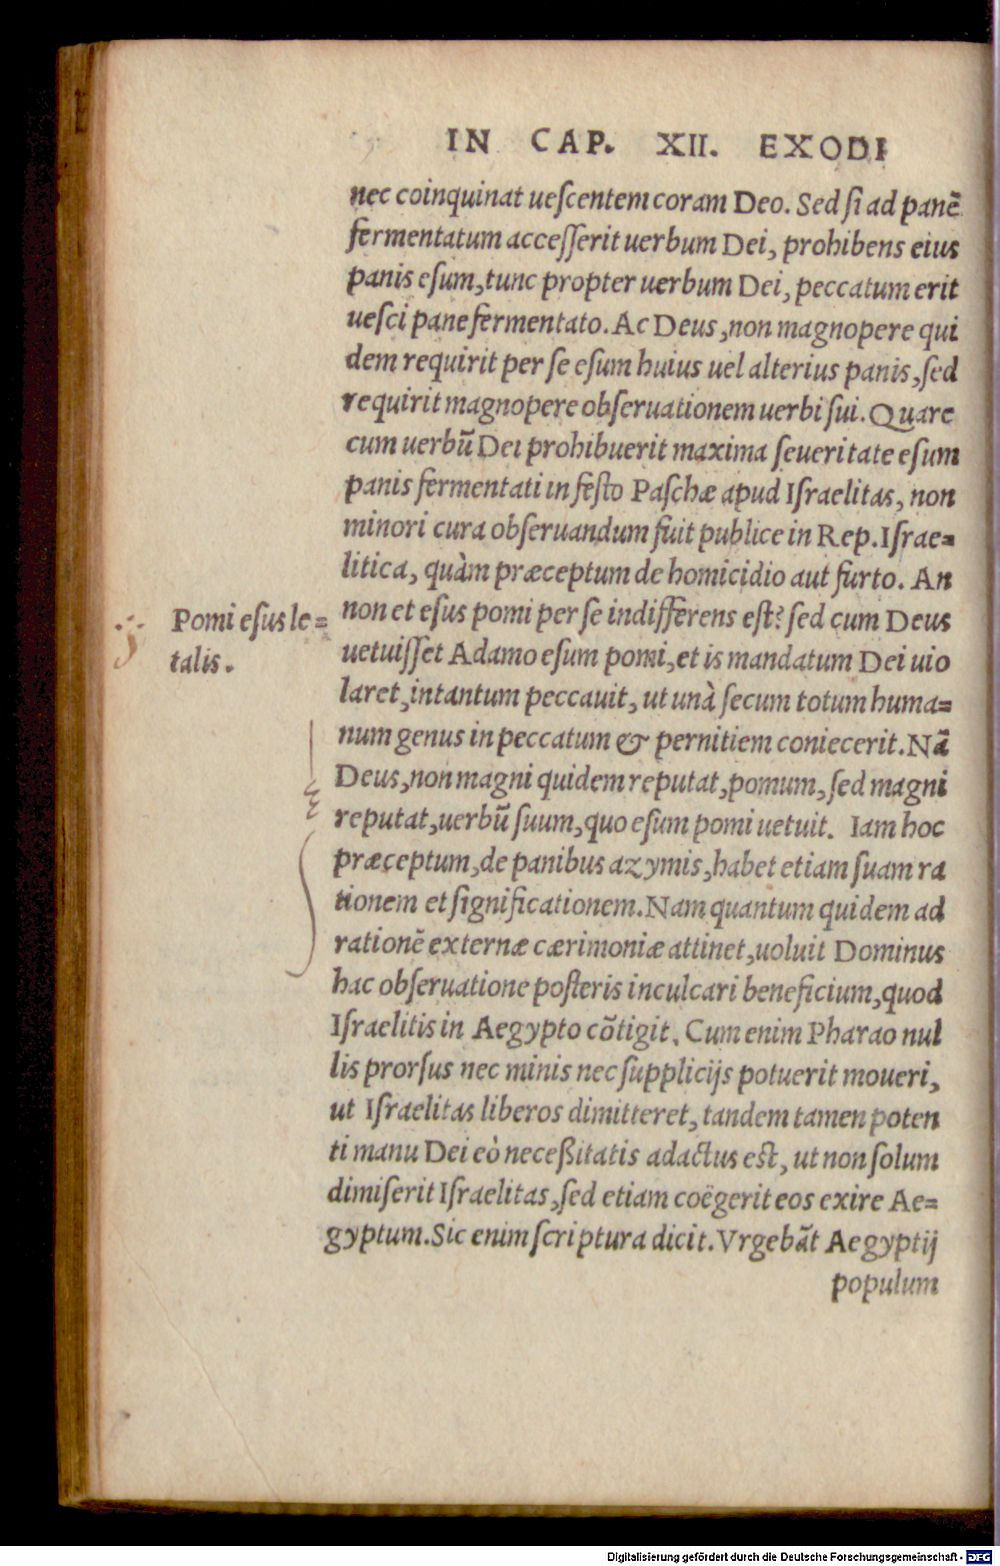 IN CAP. XII. EXODI
nec coinquinat uescentem coram Deo. Sed si ad panē
fermentatum accesserit uerbum Dei, prohibens eius
panis esum, tunc propter uerbum Dei, peccatum erit
uesci pane fermentato. Ac Deus, non magnopere qui
dem requirit per se esum huius uel alterius panis, sed
requirit magnopere obseruationem uerbi sui. Quare
cum uerbū Dei prohibuerit maxima seueritate esum
panis fermentati in festo Paschæ apud Israelitas, non
minori cura obseruandum fuit publice in Rep. Israe=
litica, quàm præceptum de homicidio aut furto. An
non et esus pomi per se indifferens est? sed cum Deus
Pomi esus le=
talis.
uetuisset Adamo esum pomi, et is mandatum Dei uio
laret, intantum peccauit, ut unà secum totum huma=
num genus in peccatum & pernitiem coniecerit. Nā
Deus, non magni quidem reputat, pomum, sed magni
reputat, uerbū suum, quo esum pomi uetuit. Iam hoc
præceptum, de panibus azymis, habet etiam suam ra
tionem et significationem. Nam quantum quidem ad
rationē externæ cærimoniæ attinet, uoluit Dominus
hac obseruatione posteris inculcari beneficium, quod
Israelitis in Aegypto cōtigit. Cum enim Pharao nul
lis prorsus nec minis nec supplicijs potuerit moueri,
ut Israelitas liberos dimitteret, tandem tamen poten
ti manu Dei eò neceßitatis adactus est, ut non solum
dimiserit Israelitas, sed etiam coëgerit eos exire Ae=
gyptum. Sic enim scriptura dicit. Vrgebāt Aegyptij
populum
Digitalisierung gefördert durch die Deutsche Forschungsgemeinschaft - DFG